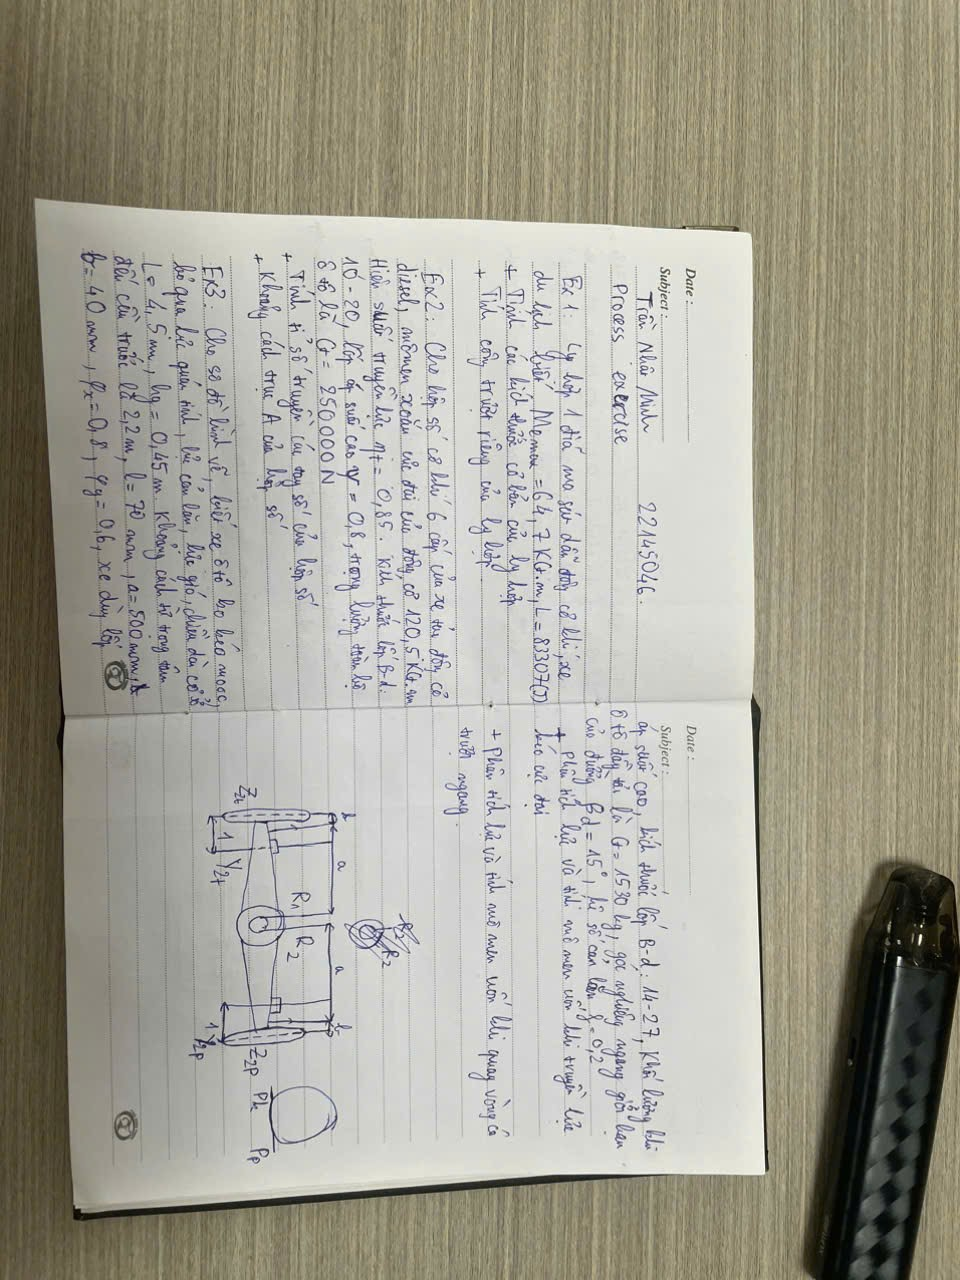 Date :
Subject :
Trần Như Ninh 22145046.
Process exercise
Ex 1: Ly hợp 1 đĩa ma sát dẫn động cơ khí, xe
du lịch biết, Memax = 64,7 KG.m, L = 83307(J)
+ Tính các kích thước cơ bản của ly hợp
+ Tính công trượt riêng của ly hợp.
Ex2: Cho hộp số cơ khí 6 cấp của xe tải động cơ
diesel, mômen xoắn cực đại của động cơ 120,5 KG.m
Hiệu suất truyền lực ηt = 0,85. kích thước lốp B-d:
10-20, lốp áp suất cao ψ = 0,8, trọng lượng toàn bộ
ô tô là G = 250000 N
+ Tính tỉ số truyền các tay số của hộp số
+ Khoảng cách trục A của hộp số
Ex3: Cho sơ đồ hình vẽ, biết xe ô tô ko kéo mooc,
bỏ qua lực quán tính, lực cản lăn, lực gió, chiều dài cơ sở
L = 4,5 m, hg = 0,45 m. Khoảng cách từ trọng tâm
đến cầu trước là 2,2 m, l = 70 mm, a = 500 mm,
b = 40 mm, φx = 0,8, φy = 0,6, xe dùng lốp
Date :
Subject :
áp suất cao, kích thước lốp B-d: 14-27, Khối lượng
ô tô đầy tải là G = 1530 kg, góc nghiêng ngang giới hạn
của đường βd = 15°, hệ số cản lăn f = 0,2
+ Phân tích lực và tính mô men uốn khi truyền lực
kéo cực đại
+ Phân tích lực và tính mô men uốn khi quay vòng có
trượt ngang.
R2
b a a b
R1 R2
Z2t Z2p Pk Pp
Y2t Y2p